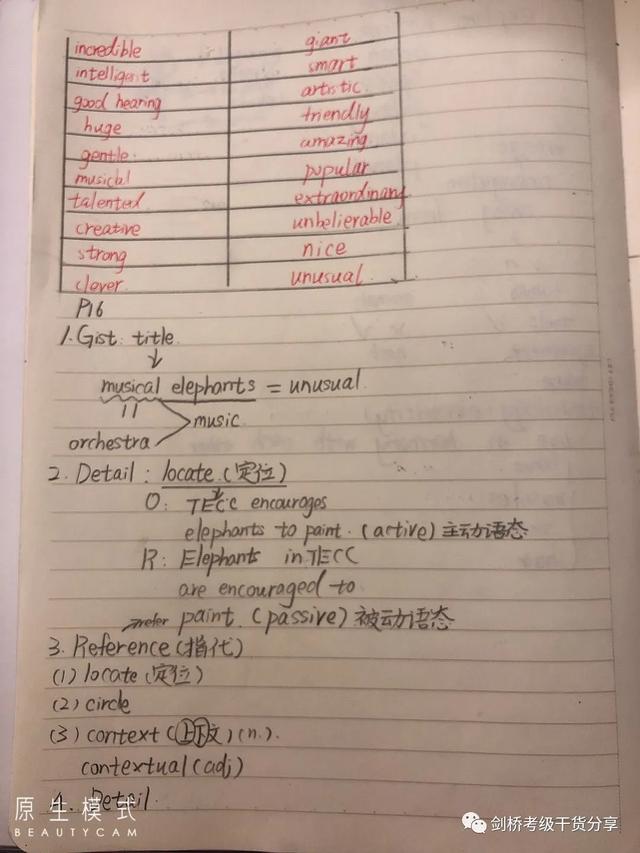 incredible giant
intelligent smart
good hearing artistic
huge friendly
gentle amazing
musical popular
talented extraordinary
creative unbelierable
strong nice
clever unusual
P16
1. Gist: title
musical elephants = unusual
music
orchestra
2. Detail: locate (定位)
O: TECC encourages
elephants to paint. (active) 主动语态
R: Elephants in TECC
are encouraged to
refer paint. (passive) 被动语态
3. Reference (指代)
(1) locate (定位)
(2) circle
(3) context (上下文) (n.).
contextual (adj)
4. Detail
原生模式
BEAUTYCAM
剑桥考级干货分享